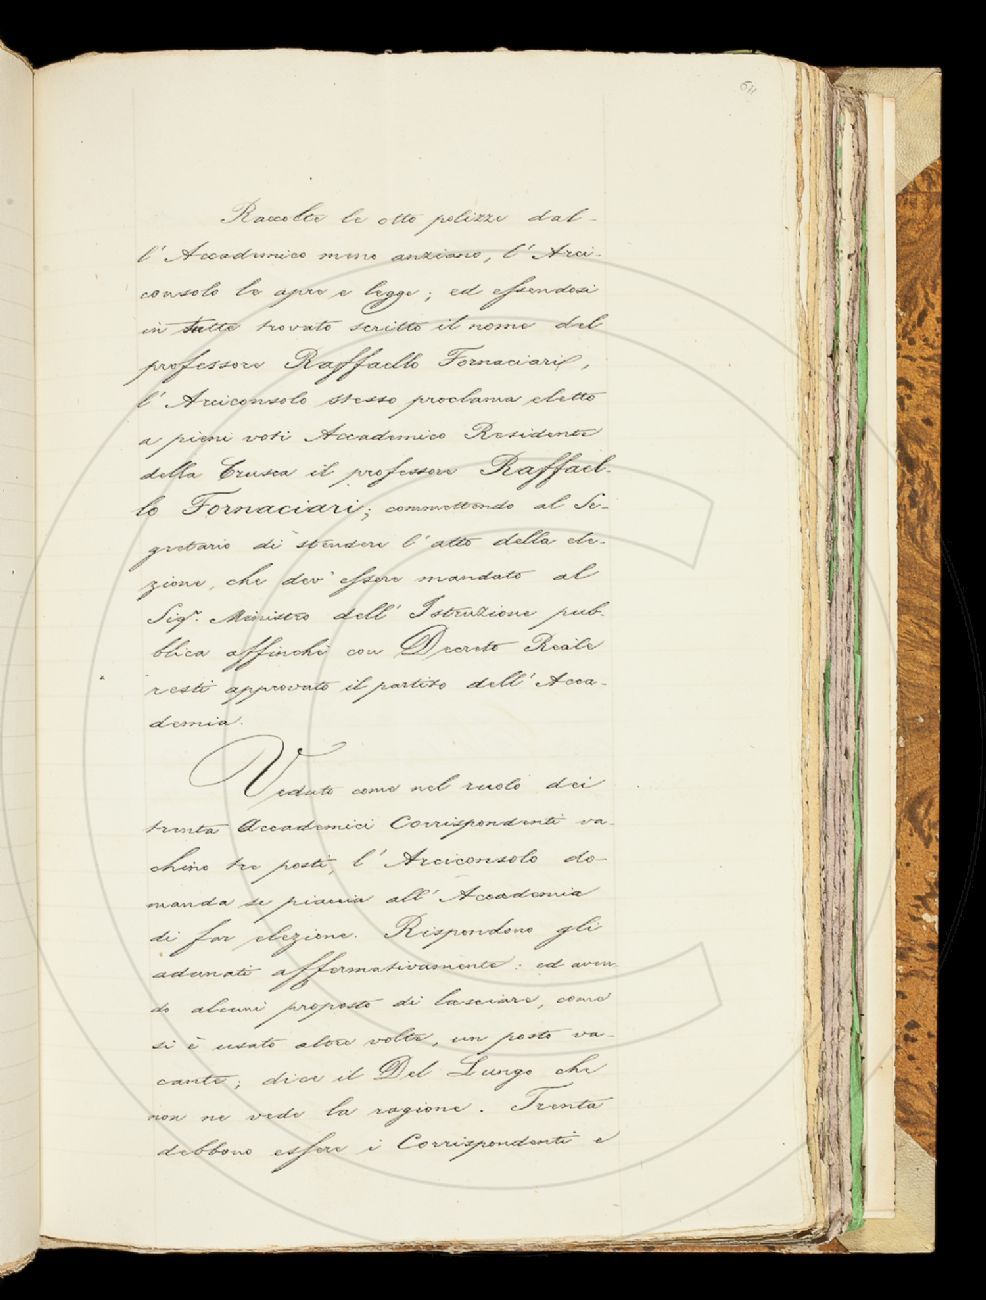 64
Raccolte le otto polizze dal-
l'Accademico meno anziano, l'Arci-
consolo le apre e legge; ed essendosi
in tutte trovato scritto il nome del
professore Raffaello Fornaciari,
l'Arciconsolo stesso proclama eletto
a pieni voti Accademico Residente
della Crusca il professore Raffael-
lo Fornaciari; commettendo al Se-
gretario di stendere l'atto della ele-
zione, che dev'essere mandato al
Sigr. Ministro dell'Istruzione pub-
blica affinchè con Decreto Reale
resti approvato il partito dell'Acca-
demia.
Veduto come nel ruolo dei
trenta Accademici Corrispondenti va-
chino tre posti, l'Arciconsolo do-
manda se piaccia all'Accademia
di far elezione. Rispondono gli
adunati affermativamente: ed aven-
do alcuni proposto di lasciare, come
si è usato altre volte, un posto va-
cante; dice il Del Lungo che
non ne vede la ragione. Trenta
debbono essere i Corrispondenti e